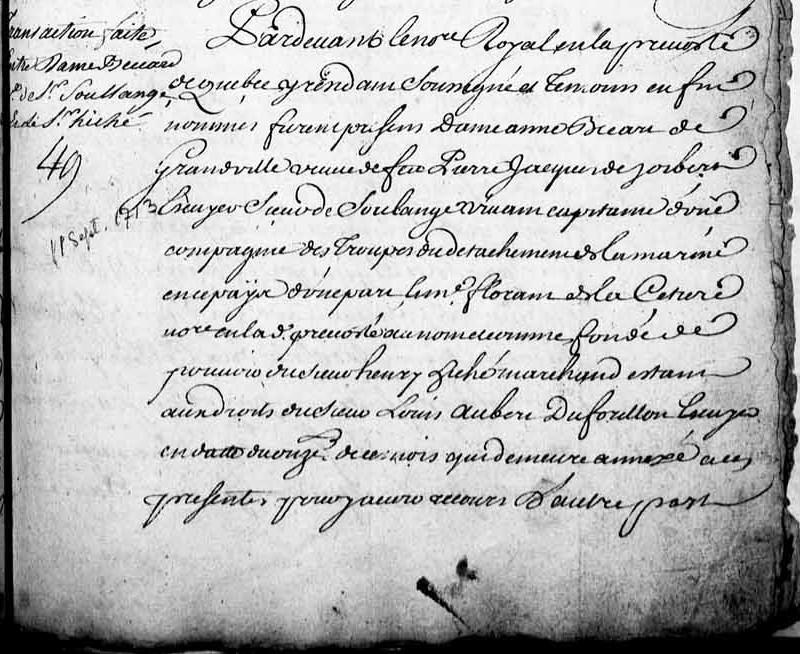 Transaction faite
entre Dame Becard
Ve. de Sr. Soullange
et le Sr. hiché
49
11 Sept. 1713
Pardevant le nore Royal en la prevosté
de quebec y residant Soussigné et Temoins en fin
nommés furent presens Dame anne Becart de
Grandville veuve de feu Pierre Jacques de Joibert
Escuyer Sieur de Soulange vivant capitaine d'une
compagnie des Troupes du detachement de la marine
en ce païx d'une part & me. florant de la Cetiere
nore en la de. prevosté au nom et comme fondé de
pouvoir du sieur henry hiché marchand estant
aux droits du sieur Louis Aubert Duforillon Escuyer
en datte du onze. de ce mois qui demeure annexé a ces
presentes pour y avoir recours D'autre part